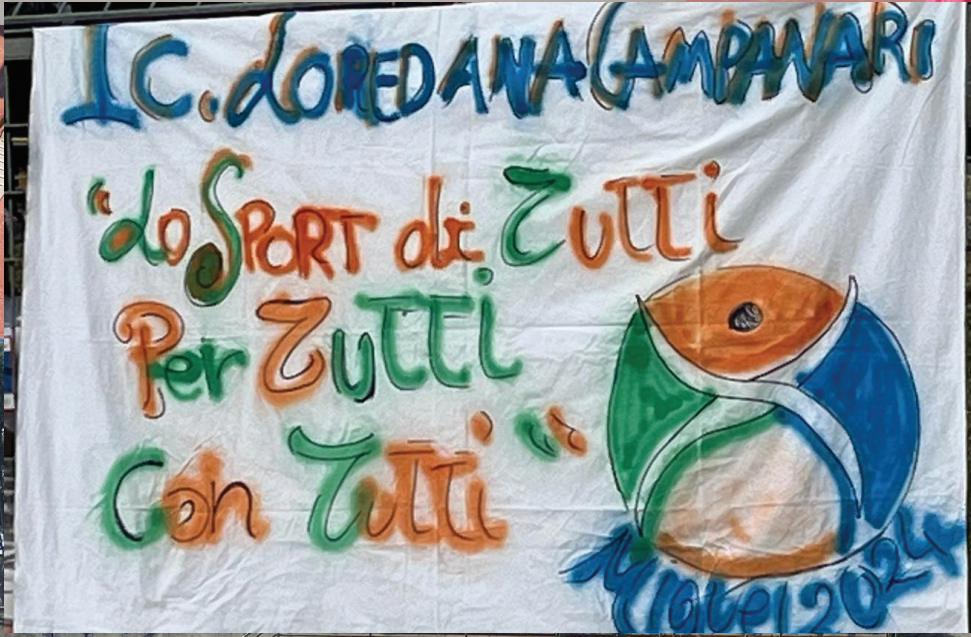 IC. LOREDANA CAMPANARI
"Lo SPORT di Tutti
Per Tutti
Con Tutti"
Miguel 2024